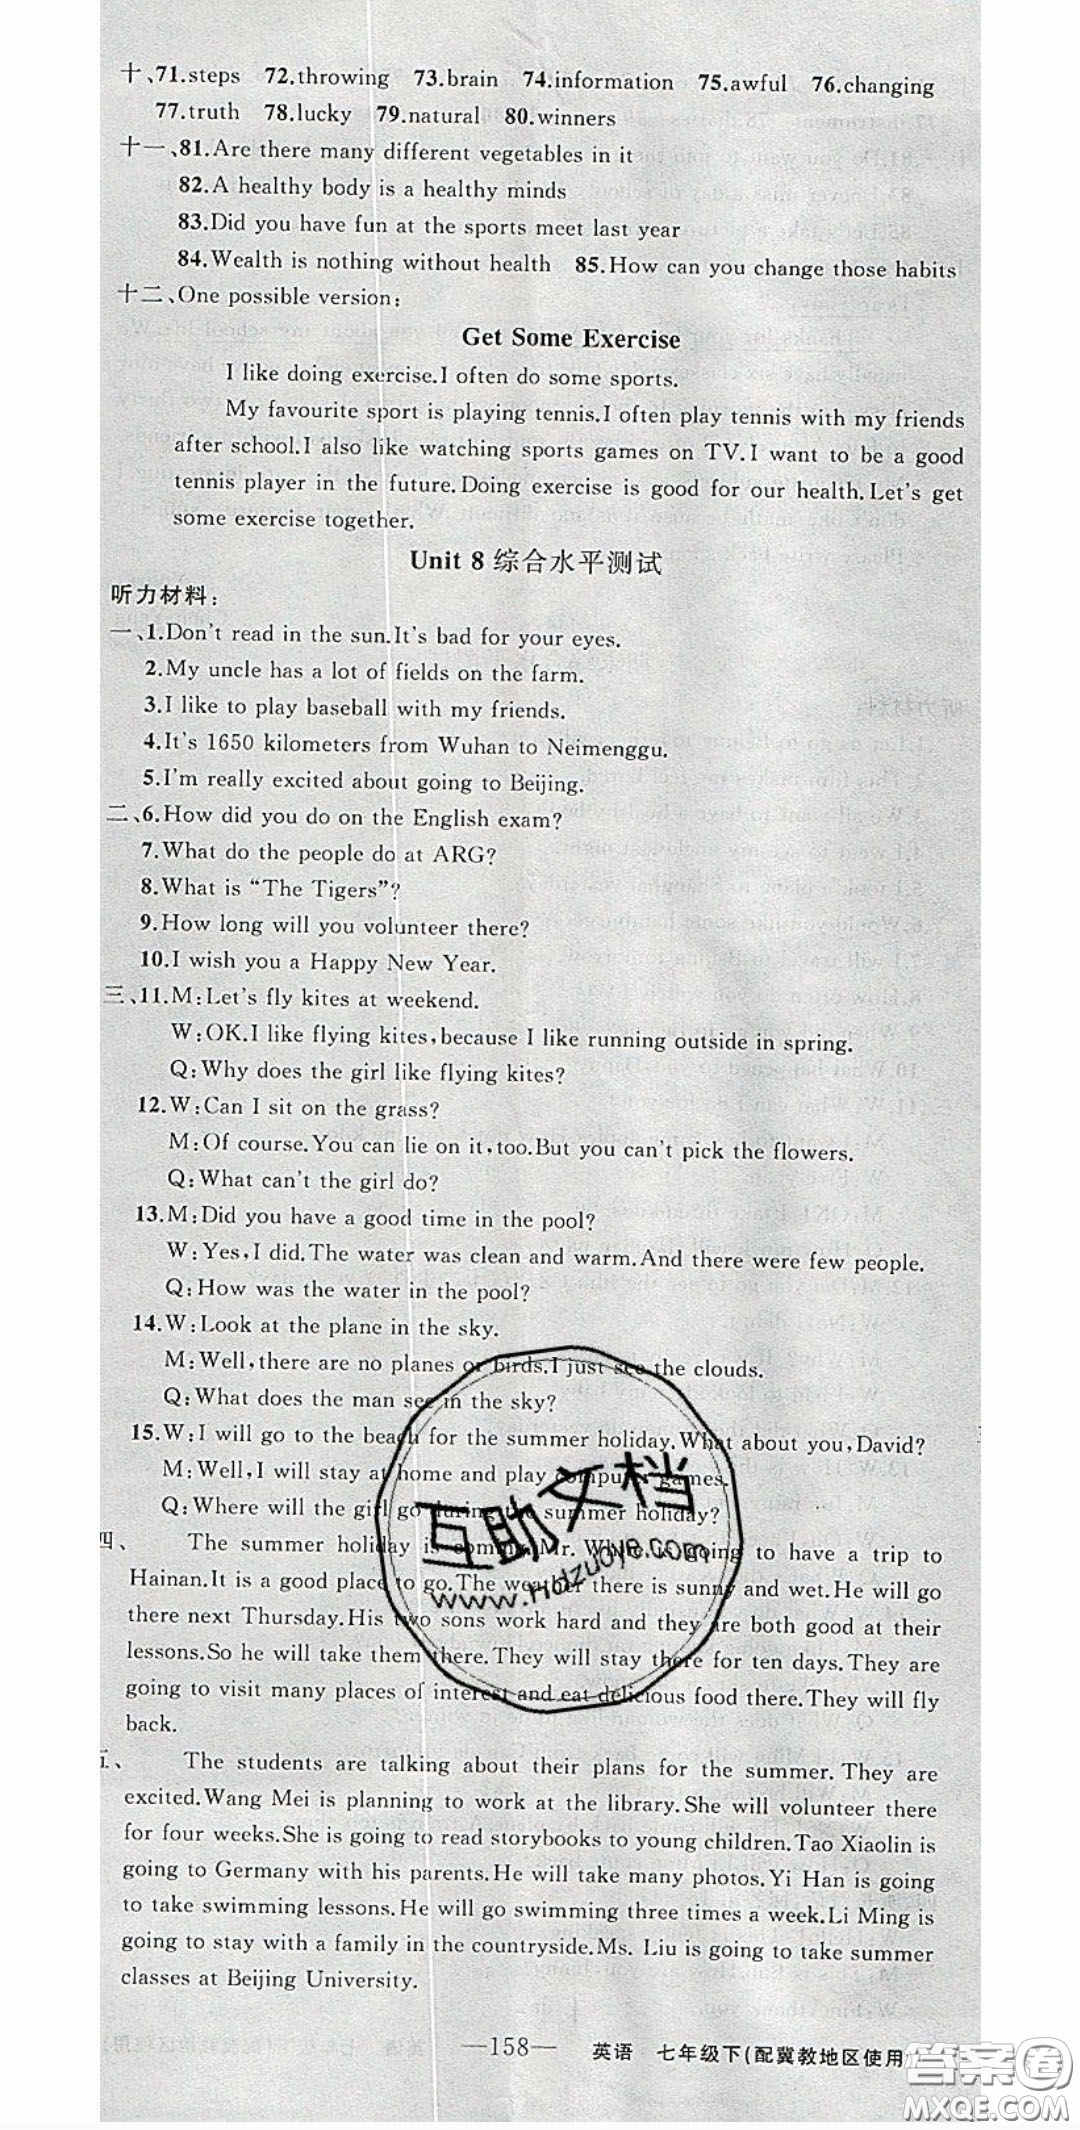 十、71.steps 72.throwing 73.brain 74.information 75.awful 76.changing
77.truth 78.lucky 79.natural 80.winners
十一、81.Are there many different vegetables in it
82.A healthy body is a healthy minds
83.Did you have fun at the sports meet last year
84.Wealth is nothing without health 85.How can you change those habits
十二、One possible version:
Get Some Exercise
I like doing exercise.I often do some sports.
My favourite sport is playing tennis.I often play tennis with my friends
after school.I also like watching sports games on TV.I want to be a good
tennis player in the future.Doing exercise is good for our health.Let's get
some exercise together.
Unit 8 综合水平测试
听力材料:
一、1.Don't read in the sun.It's bad for your eyes.
2.My uncle has a lot of fields on the farm.
3.I like to play baseball with my friends.
4.It's 1650 kilometers from Wuhan to Neimenggu.
5.I'm really excited about going to Beijing.
二、6.How did you do on the English exam?
7.What do the people do at ARG?
8.What is "The Tigers"?
9.How long will you volunteer there?
10.I wish you a Happy New Year.
三、11.M:Let's fly kites at weekend.
W:OK.I like flying kites,because I like running outside in spring.
Q:Why does the girl like flying kites?
12.W:Can I sit on the grass?
M:Of course.You can lie on it,too.But you can't pick the flowers.
Q:What can't the girl do?
13.M:Did you have a good time in the pool?
W:Yes,I did.The water was clean and warm.And there were few people.
Q:How was the water in the pool?
14.W:Look at the plane in the sky.
M:Well,there are no planes or birds.I just see the clouds.
Q:What does the man see in the sky?
15.W:I will go to the beach for the summer holiday.What about you,David?
M:Well,I will stay at home and play computer games.
Q:Where will the girl go during the summer holiday?
四、 The summer holiday is coming.Mr. White is going to have a trip to
Hainan.It is a good place to go.The weather there is sunny and wet.He will go
there next Thursday.His two sons work hard and they are both good at their
lessons.So he will take them there.They will stay there for ten days.They are
going to visit many places of interest and eat delicious food there.They will fly
back.
五、 The students are talking about their plans for the summer. They are
excited.Wang Mei is planning to work at the library.She will volunteer there
for four weeks.She is going to read storybooks to young children.Tao Xiaolin is
going to Germany with his parents.He will take many photos.Yi Han is going
to take swimming lessons.He will go swimming three times a week.Li Ming is
going to stay with a family in the countryside.Ms. Liu is going to take summer
classes at Beijing University.
互助文档
www.Hdzuoye.com
—158— 英语 七年级下(配冀教地区使用
答案卷
MXQE.COM